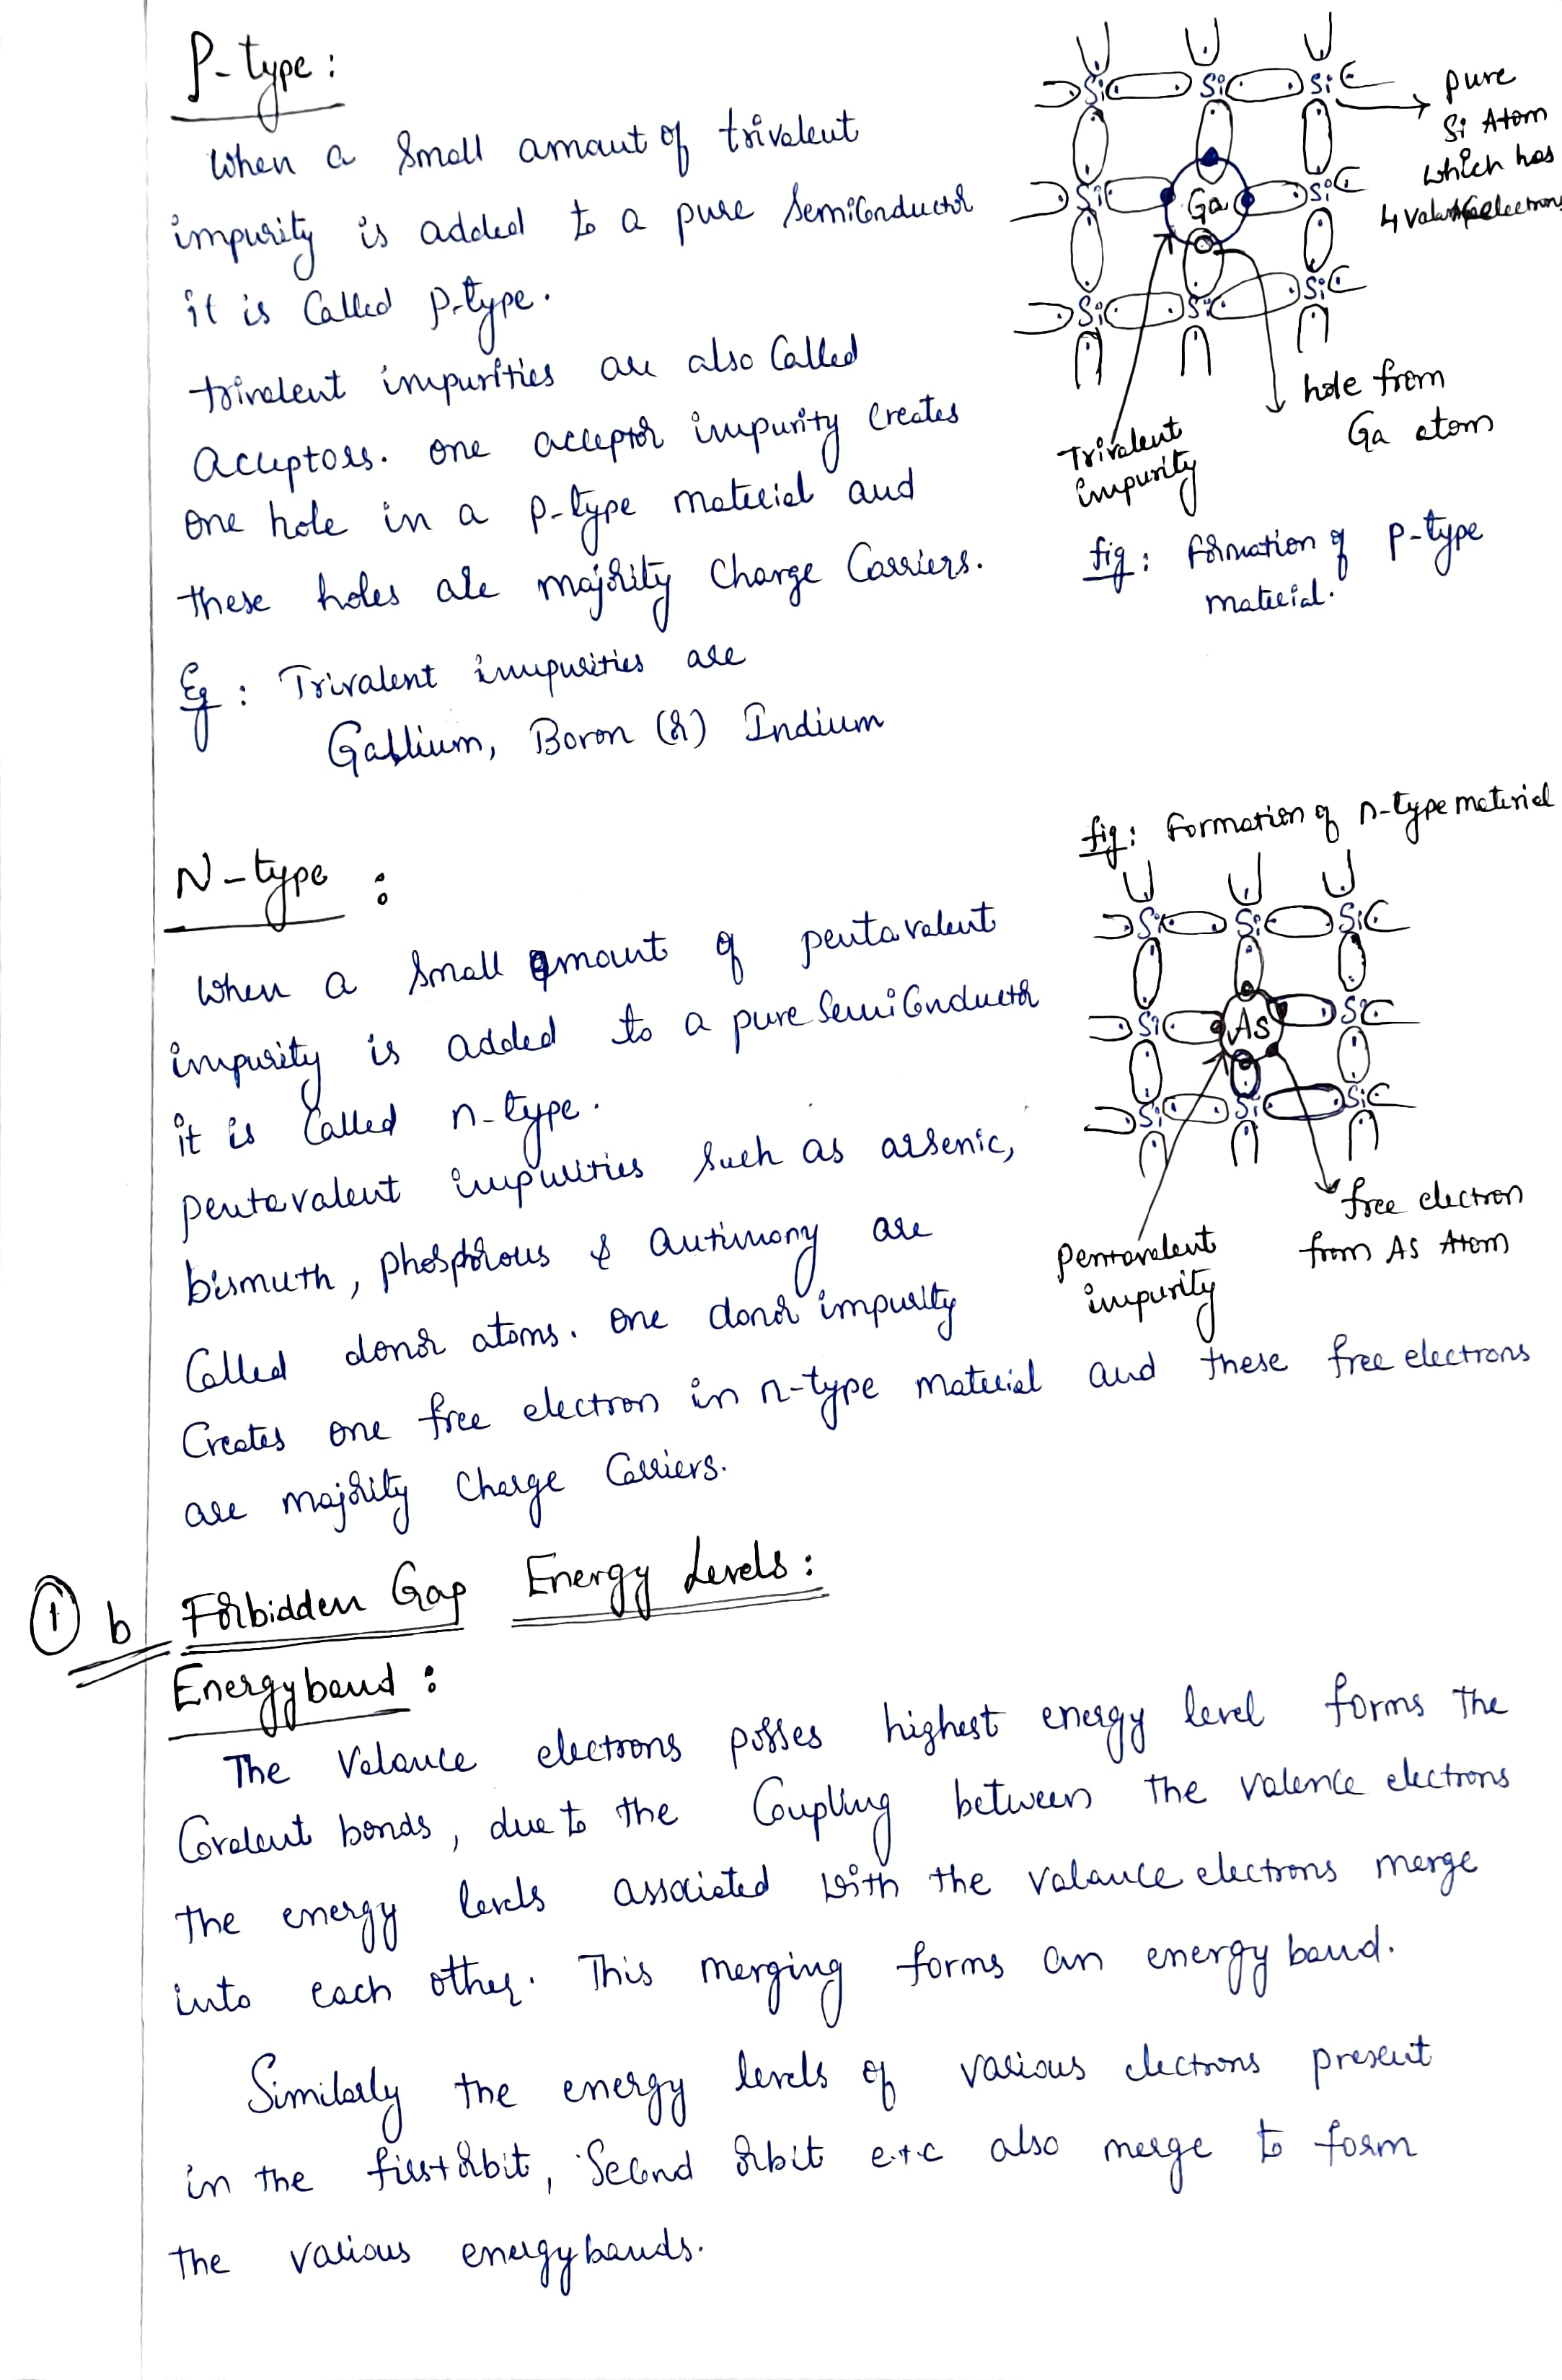 P-type :
When a small amount of trivalent
impurity is added to a pure semiconductor
it is called p-type.
trivalent impurities are also called
acceptors. one acceptor impurity creates
one hole in a p-type material and
these holes are majority charge carriers.
Eg : Trivalent impurities are
Gallium, Boron (or) Indium
Si Si Si
Si Ga Si
Si Si Si
pure
Si Atom
which has
4 valence electrons
hole from
Ga atom
Trivalent
impurity
fig : formation of p-type
material.
N-type :
When a small amount of pentavalent
impurity is added to a pure semiconductor
it is called n-type.
pentavalent impurities such as arsenic,
bismuth, phosphorous & antimony are
called donor atoms. one donor impurity
creates one free electron in n-type material and these free electrons
are majority charge carriers.
fig : Formation of n-type material
Si Si Si
Si As Si
Si Si Si
free electron
from As Atom
pentavalent
impurity
1 b Forbidden Gap Energy Levels :
Energy band :
The valance electrons posses highest energy level forms the
covalent bonds, due to the coupling between the valence electrons
the energy levels associated with the valance electrons merge
into each other. This merging forms an energy band.
Similarly the energy levels of various electrons present
in the first orbit, second orbit e.t.c also merge to form
the various energy bands.